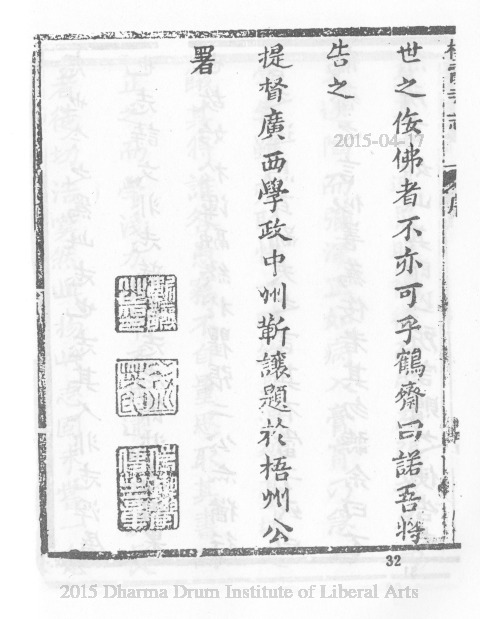 世之佞佛者不亦可乎鶴齋曰諾吾將
告之
提督廣西學政中州靳讓題於梧州公
署
32
2015-04-17
2015 Dharma Drum Institute of Liberal Arts